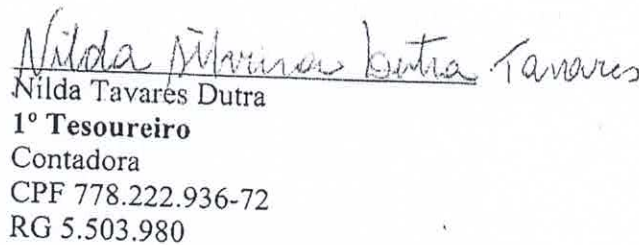 Nilda Dutra Tavares
Nilda Tavares Dutra
1º Tesoureiro
Contadora
CPF 778.222.936-72
RG 5.503.980